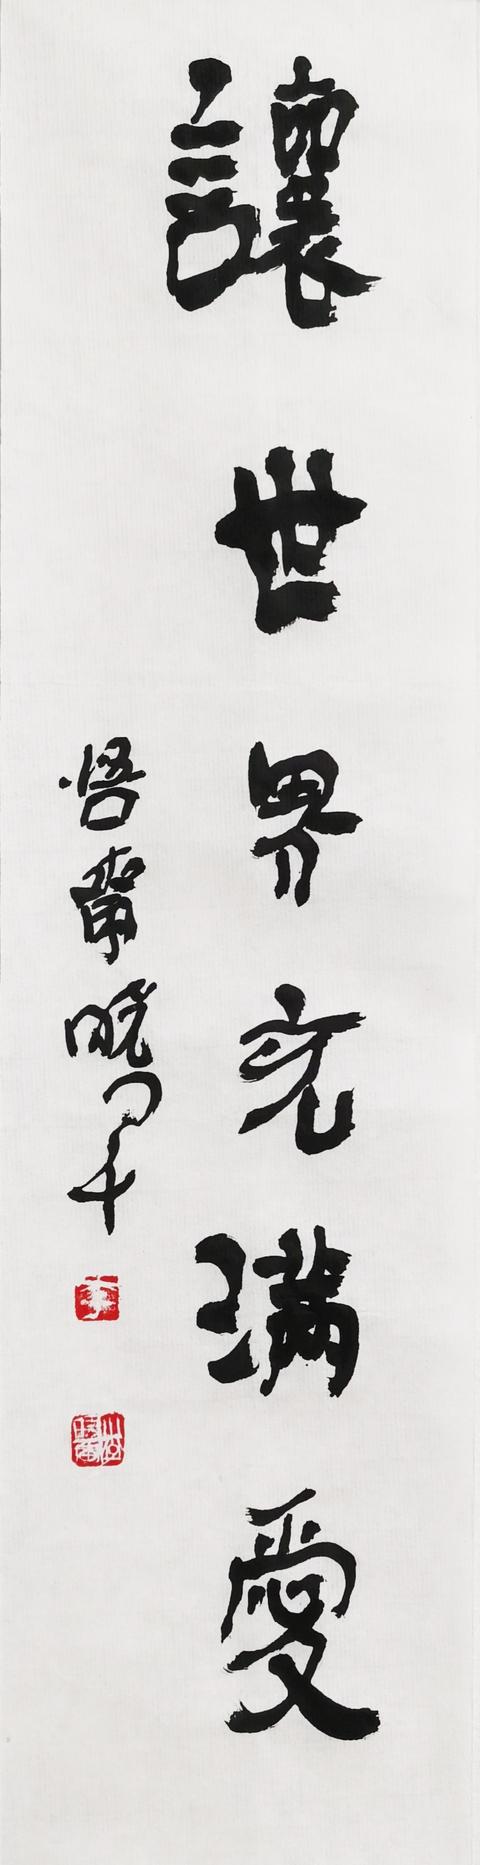 讓世界充滿愛
悟齋曉